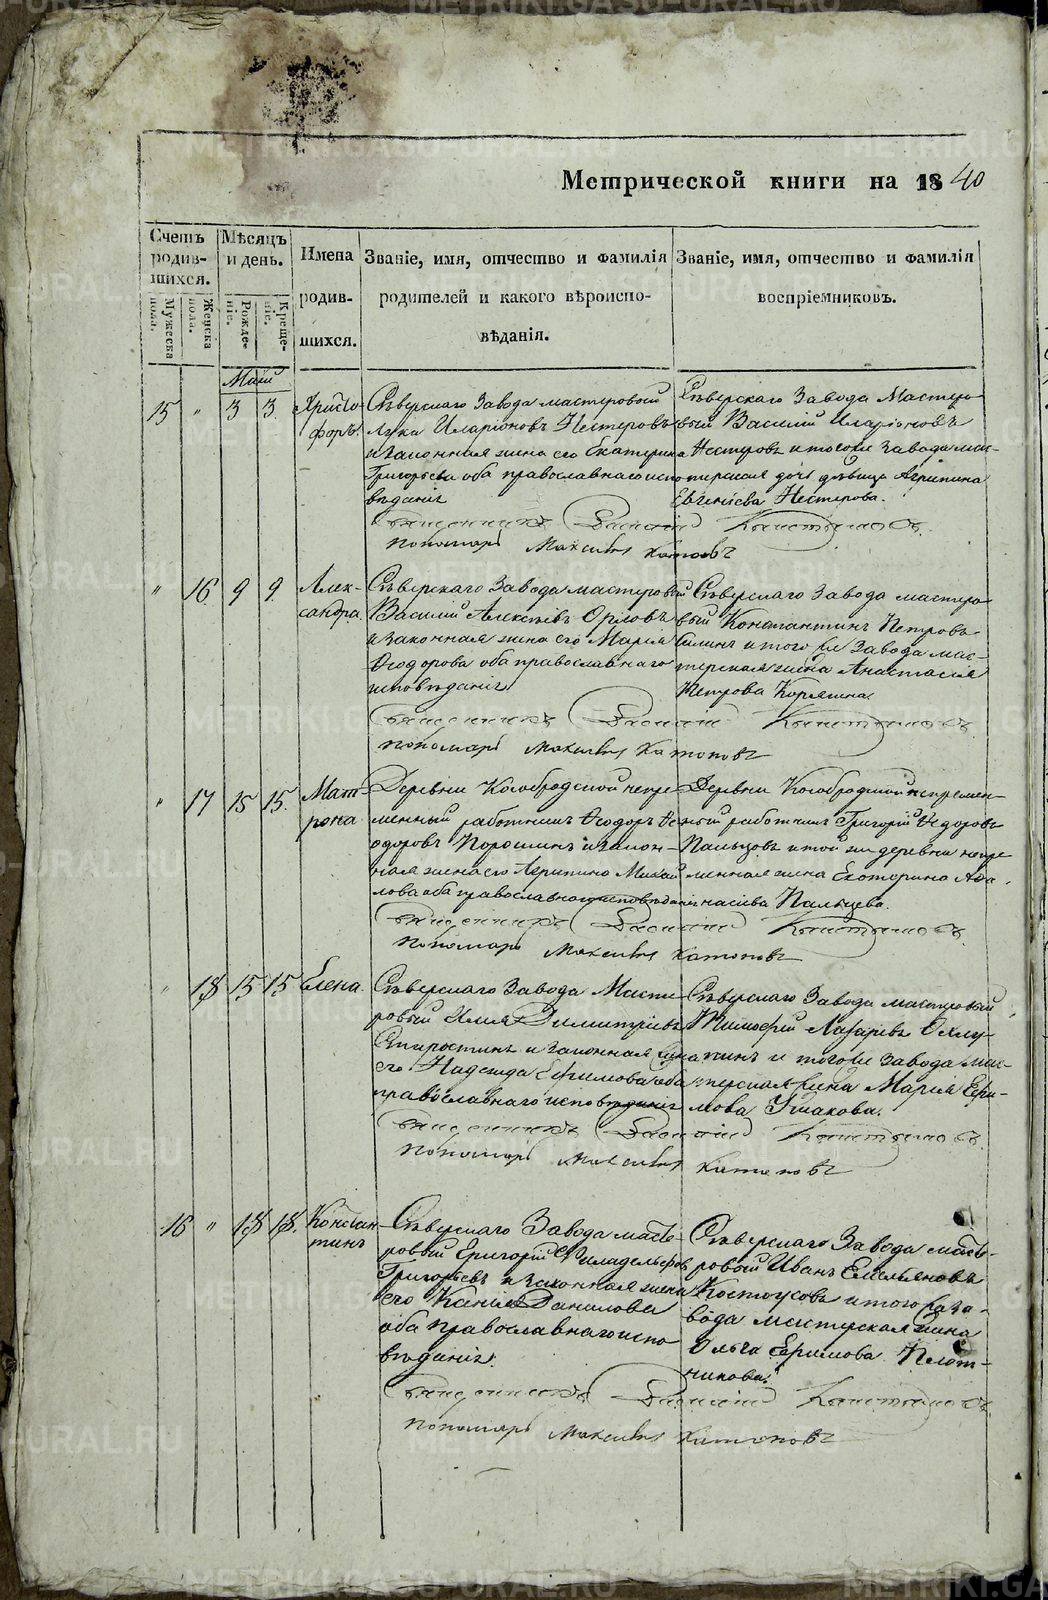 Метрической книги на 1840
Счетъ родившихся.
Мѣсяцъ и день.
Имена родившихся.
Званіе, имя, отчество и фамилія родителей и какого вѣроисповѣданія.
Званіе, имя, отчество и фамилія воспріемниковъ.
Мужеска пола.
Женска пола.
Рожденіе.
Крещеніе.
Маій
15 " 3 3.
Христофоръ.
Сѣверскаго Завода мастеровый
Лука Иларіоновъ Нестеровъ
и законная жена его Екатерина
Григорьева оба православнаго испо-
вѣданія
Сѣверскаго Завода Мастеро-
вый Василій Иларіоновъ
Нестеровъ и того же Завода мас-
терская дочь дѣвица Агрипина
Евгеніева Нестерова.
Священникъ Василій
Пономарь Максимъ
" 16 9 9.
Алек-
сандра
Сѣверскаго Завода мастеровый
Василій Алексѣевъ Орловъ
и законная жена его Марія
Ѳеодорова оба православнаго
исповѣданія
Сѣверскаго Завода мастеро-
вый Константинъ Петровъ
и того же Завода мас-
терская жена Анастасія
Петрова
Священникъ Василій
Пономарь Максимъ
" 17 15 15.
Мат-
рона
Деревни Кособродской непре-
менный работникъ Ѳеодоръ Ѳе-
одоровъ Порошинъ и закон-
ная жена его Агрипина Михай-
лова оба православнаго исповѣданія
Деревни Кособродской непремен-
ный работникъ Григорій Ѳедоровъ
Пальцовъ и той же деревни непре-
менная жена Екатерина Афа-
насіева Пальцева.
Священникъ Василій
Пономарь Максимъ
" 18 15 15.
Елена.
Сѣверскаго Завода Масте-
ровый Илія Димитріевъ
Старостинъ и законная жена
его Надежда Ефимова оба
православнаго исповѣданія
Сѣверскаго Завода мастеровый
Тимофей Лазаревъ
и того же Завода мас-
терская жена Марія Ефи-
мова Ушакова.
Священникъ Василій
Пономарь Максимъ
16 " 18 18.
Констан-
тинъ
Сѣверскаго Завода масте-
ровый Григорій Филадельфовъ
Григорьевъ и законная жена
его Ксенія Данилова
оба православнаго испо-
вѣданія.
Сѣверскаго Завода масте-
ровый Иванъ Емельяновъ
Костоусовъ и того же За-
вода мастерская жена
Ольга Ефимова Плот-
никова.
Священникъ Василій
Пономарь Максимъ
METRIKI.GASO-URAL.RU